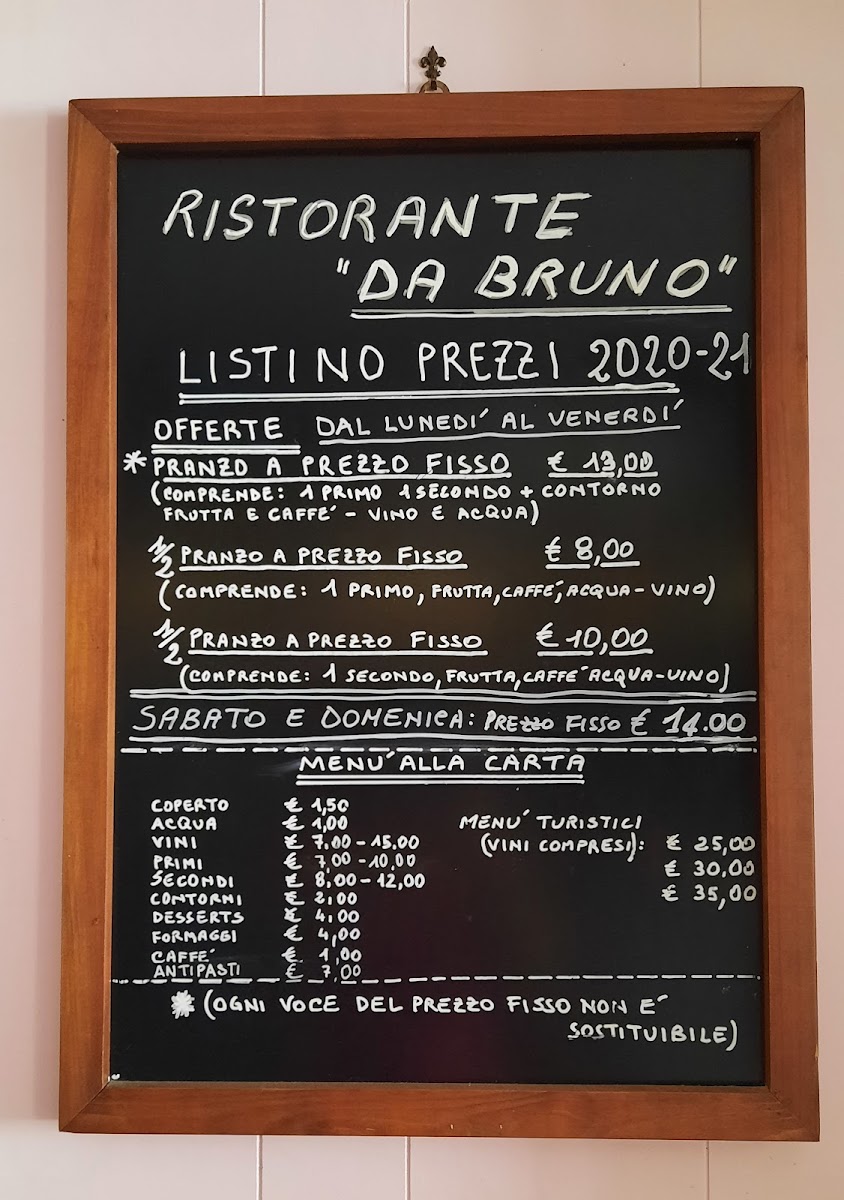 RISTORANTE
"DA BRUNO"
LISTINO PREZZI 2020-21
OFFERTE DAL LUNEDI´ AL VENERDI´
* PRANZO A PREZZO FISSO € 13,00
(COMPRENDE: 1 PRIMO 1 SECONDO + CONTORNO
FRUTTA E CAFFE´ - VINO E ACQUA)
1/2 PRANZO A PREZZO FISSO € 8,00
(COMPRENDE: 1 PRIMO, FRUTTA, CAFFE´, ACQUA - VINO)
1/2 PRANZO A PREZZO FISSO € 10,00
(COMPRENDE: 1 SECONDO, FRUTTA, CAFFE´ ACQUA-VINO)
SABATO E DOMENICA: PREZZO FISSO € 14.00
MENU´ ALLA CARTA
COPERTO € 1,50
ACQUA € 1,00
VINI € 7.00 - 15.00
PRIMI € 7,00 - 10,00
SECONDI € 8,00 - 12,00
CONTORNI € 2,00
DESSERTS € 4.00
FORMAGGI € 4,00
CAFFE´ € 1,00
ANTIPASTI € 7,00
MENU´ TURISTICI
(VINI COMPRESI): € 25,00
€ 30,00
€ 35,00
* (OGNI VOCE DEL PREZZO FISSO NON E´
SOSTITUIBILE)